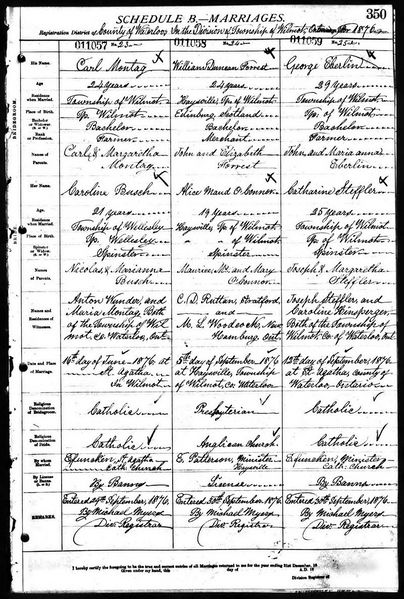 SCHEDULE B.—MARRIAGES.
350
Registration District of County of Waterloo In the Division of Township of Wilmot, 1876
011057 No 23
011058 No 24
011059 No 25
BRIDEGROOM.
His Name.
Carl Montag
William Duncan Forrest
George Eberlin
Age
24 years
24 years
29 years
Residence when Married.
Township of Wilmot
Haysville Tp. of Wilmot
Township of Wilmot
Place of Birth.
Tp. Wilmot
Edinburg Scotland
Tp. of Wilmot
Bachelor or Widower (B. or W.)
Bachelor
Bachelor
Bachelor
Rank or Profession.
Farmer
Merchant
Farmer
Names of Parents.
Carl & Margaritha
Montag
John and Elizabeth
Forrest
John and Maria anna
Eberlin
Her Name.
Caroline Busch
Alice Maud O'Connor
Catharine Steffler
Age
21 years
19 years
25 years
Residence when Married.
Township of Wellesley
Haysville Tp. of Wilmot
Township of Wilmot
Place of Birth.
Tp. Wellesley
" " of Wilmot
Tp. of Wilmot
Spinster or Widow (S. or W.)
Spinster
Spinster
Spinster
Names of Parents
Nicolas & Marianna
Busch
Maurice Mc. and Mary
O'Connor
Joseph & Margaretha
Steffler
Names and Residences of Witnesses.
Anton Wynder, and
Maria Montag Both
of the Township of Wil
mot Co. Waterloo, Ont
C. D. Ruttan, Stratford,
and
M. L. Woodcock, New
Hamburg, Ont.
Joseph Steffler, and
Caroline Kinsperger
Both of the Township of
Wilmot, Co. of Waterloo, Ont
Date and Place of Marriage.
16th day of June 1876 at
St. Agatha
In Wilmot
5th day of September 1876
at Haysville, Township
of Wilmot, Co. Waterloo
12th day of September 1876
at St. Agatha, County of
Waterloo, Ontario
Religious Denomination of Bridegroom.
Catholic
Presbyterian
Catholic
Religious Denomination of Bride.
Catholic
Anglican Church
Catholic
By whom Married.
E. Funcken, St. Agatha
Cath. Church
E. Patterson, Minister
Haysville
E. Funcken, Minister
Cath. Church
By License or Banns.
By Banns
License
By Banns
REMARKS.
Entered September, 1876,
By Michael Myers
Div. Registrar
Entered September, 1876
By Michael Myers
Div. Registrar
Entered 30th September, 1876.
By Michael Myers
Div. Registrar
I hereby certify the foregoing to be the true and correct entries of all Marriages returned to me for the year ending 31st December, 18
Given under my hand, this day of A.D. 18
Division Registrar of